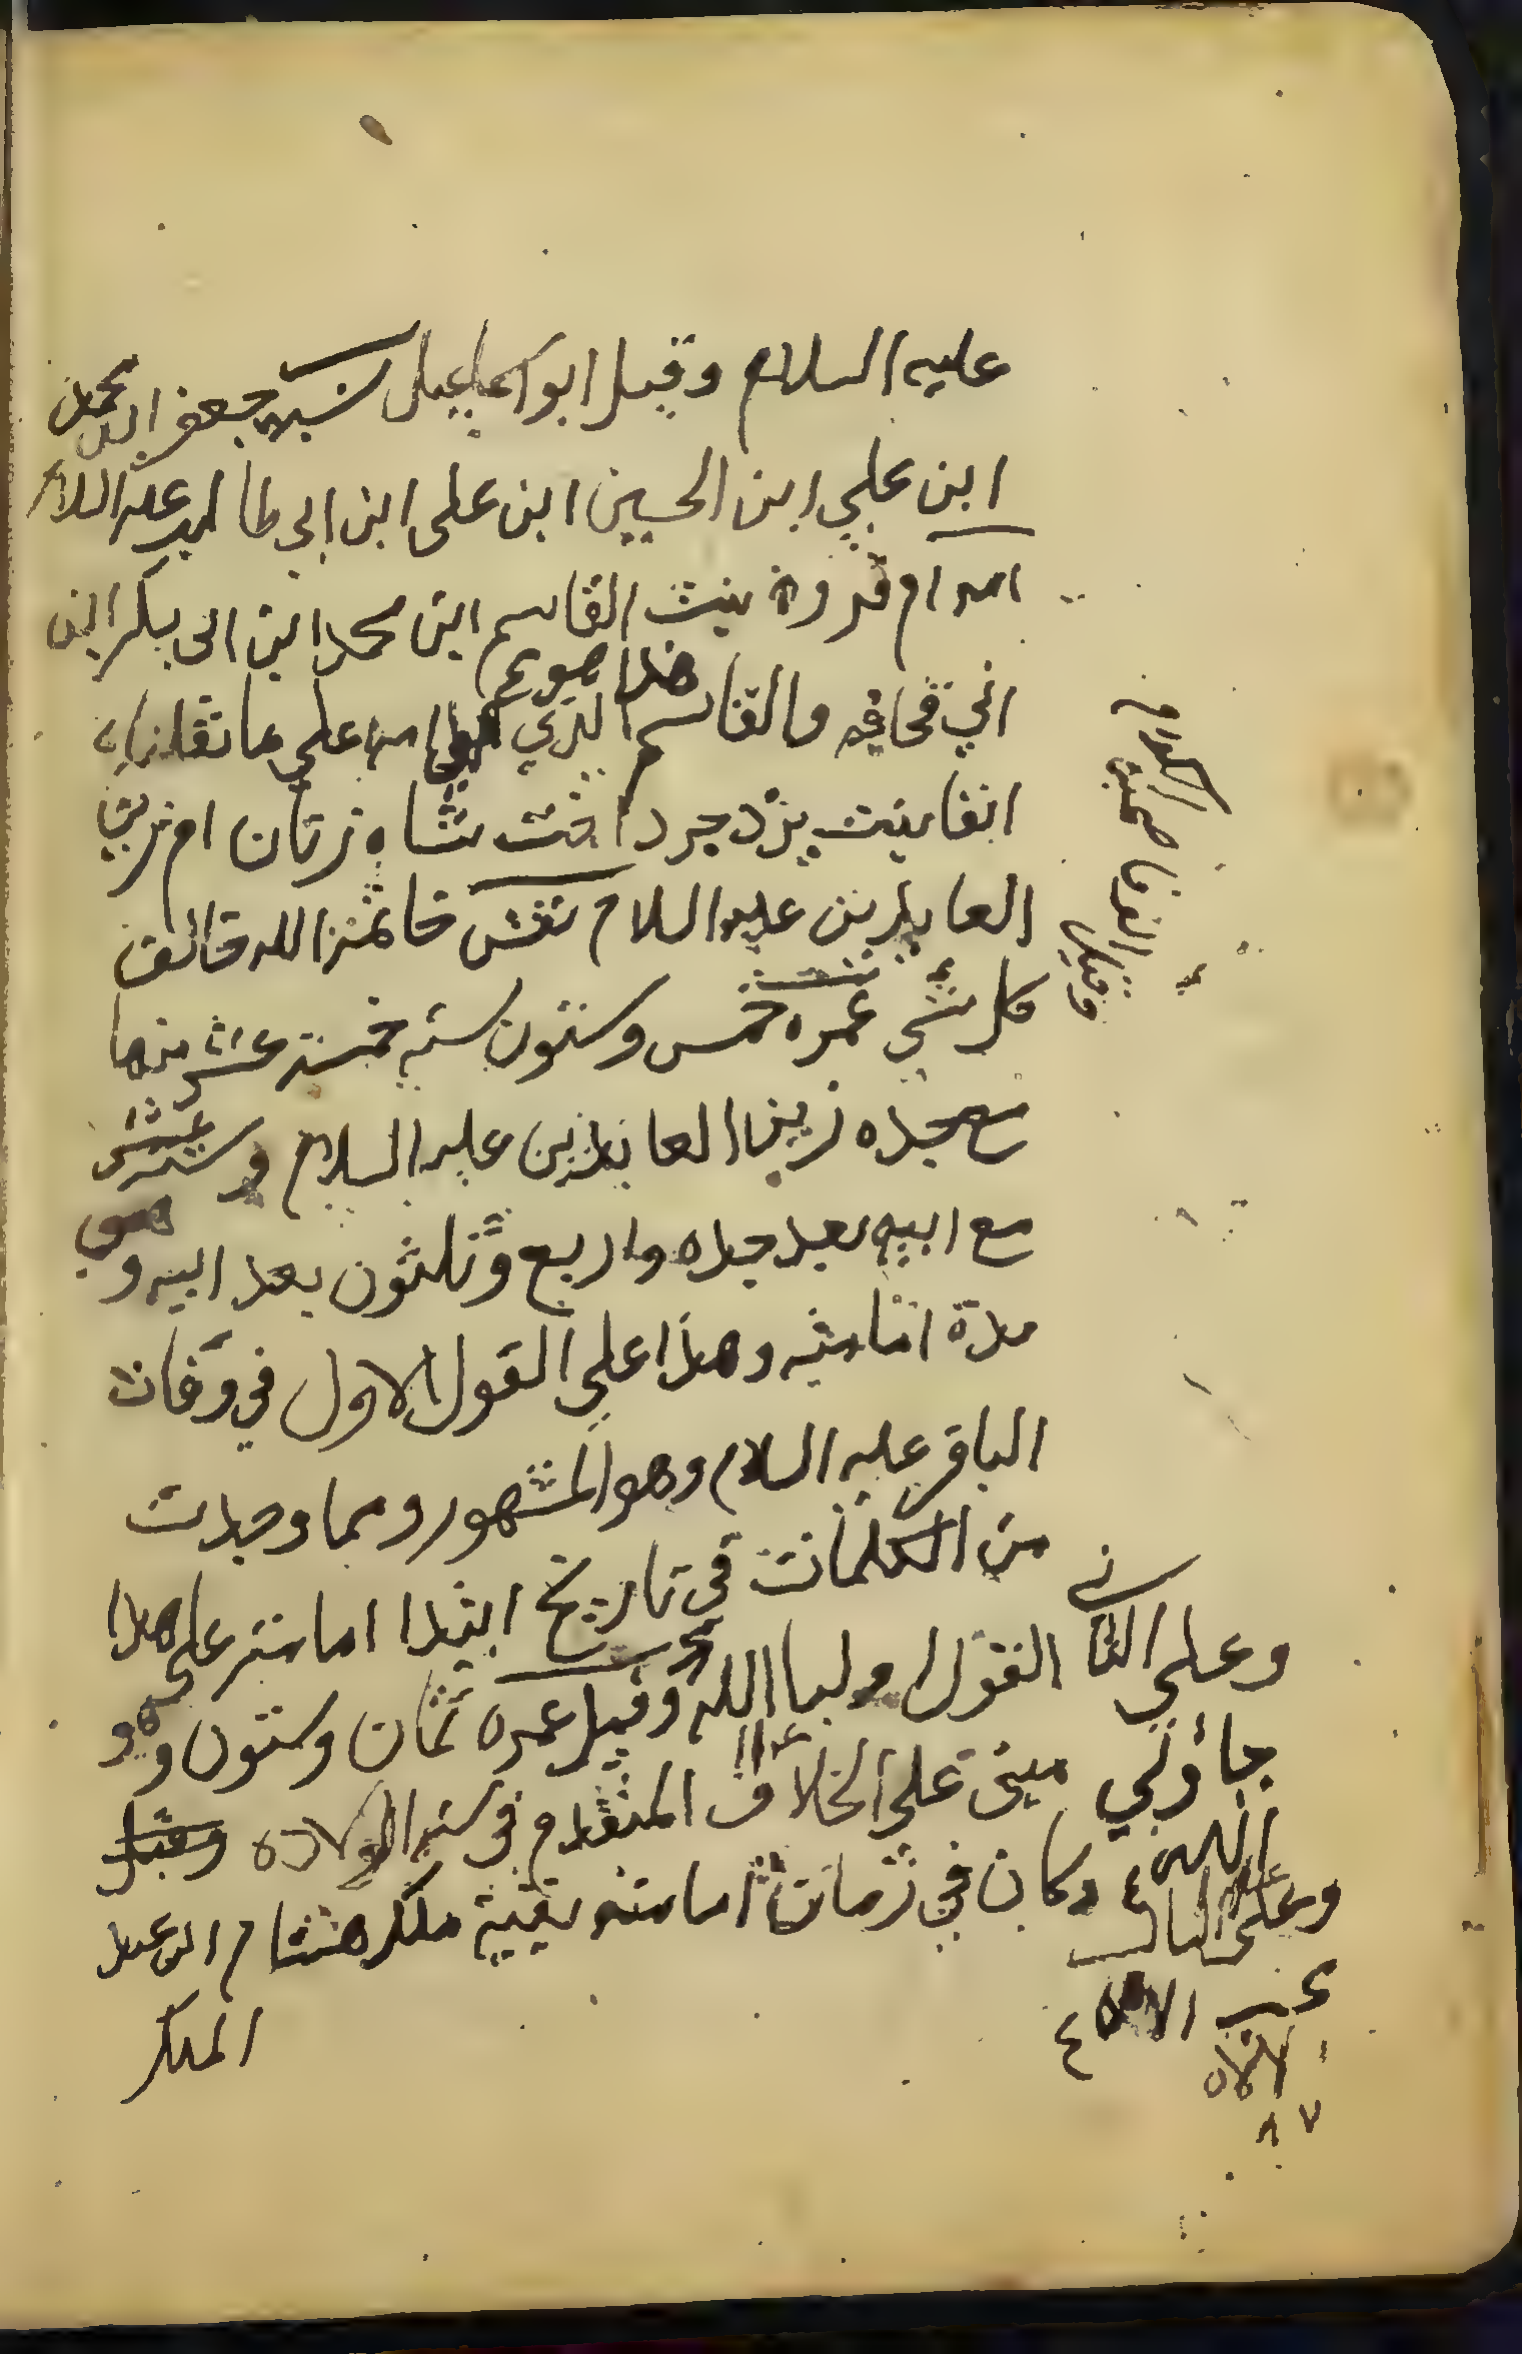 عليه السلام وقيل ابو اسماعيل نسبه جعفر ابن محمد
ابن علي ابن الحسين ابن علي ابن ابي طالب عليه السلام
امه ام فروة بنت القاسم ابن محمد ابن ابي بكر ابن
ابي قحافه والقاسم هذا هو الذي امه على ما نقل
بنت يزدجرد اخت شاه زنان ام زين
العابدين عليه السلام نقش خاتمه الله خالق
كل شيء عمره خمس وستون سنه خمسة عشر منها
مع جده زين العابدين عليه السلام و ستة عشر
مع ابيه بعد جده واربع وثلثون بعد ابيه وهي
مدة امامته وهذا على القول الاول في وفات
الباقر عليه السلام وهو المشهور ومما وجدت
من الكلمات في تاريخ ابتدا امامته على هذا
القول وقيل عمره ثمان وستون وهو
مبنى على الخلاف المتقدم في سنة الولادة وقيل
وكان في زمان امامته بقية ملك هشام ابن عبد
الملك
وقيل
وعلى الثاني
جاء ولي
الله